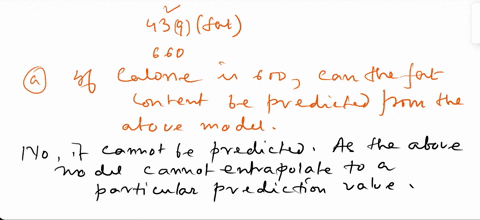 43(9) (fat)
660
(a) If Calorie is 600, can the fat
content be predicted from the
above model.
No, it cannot be predicted. As the above
model cannot entrapolate to a
particular prediction value.